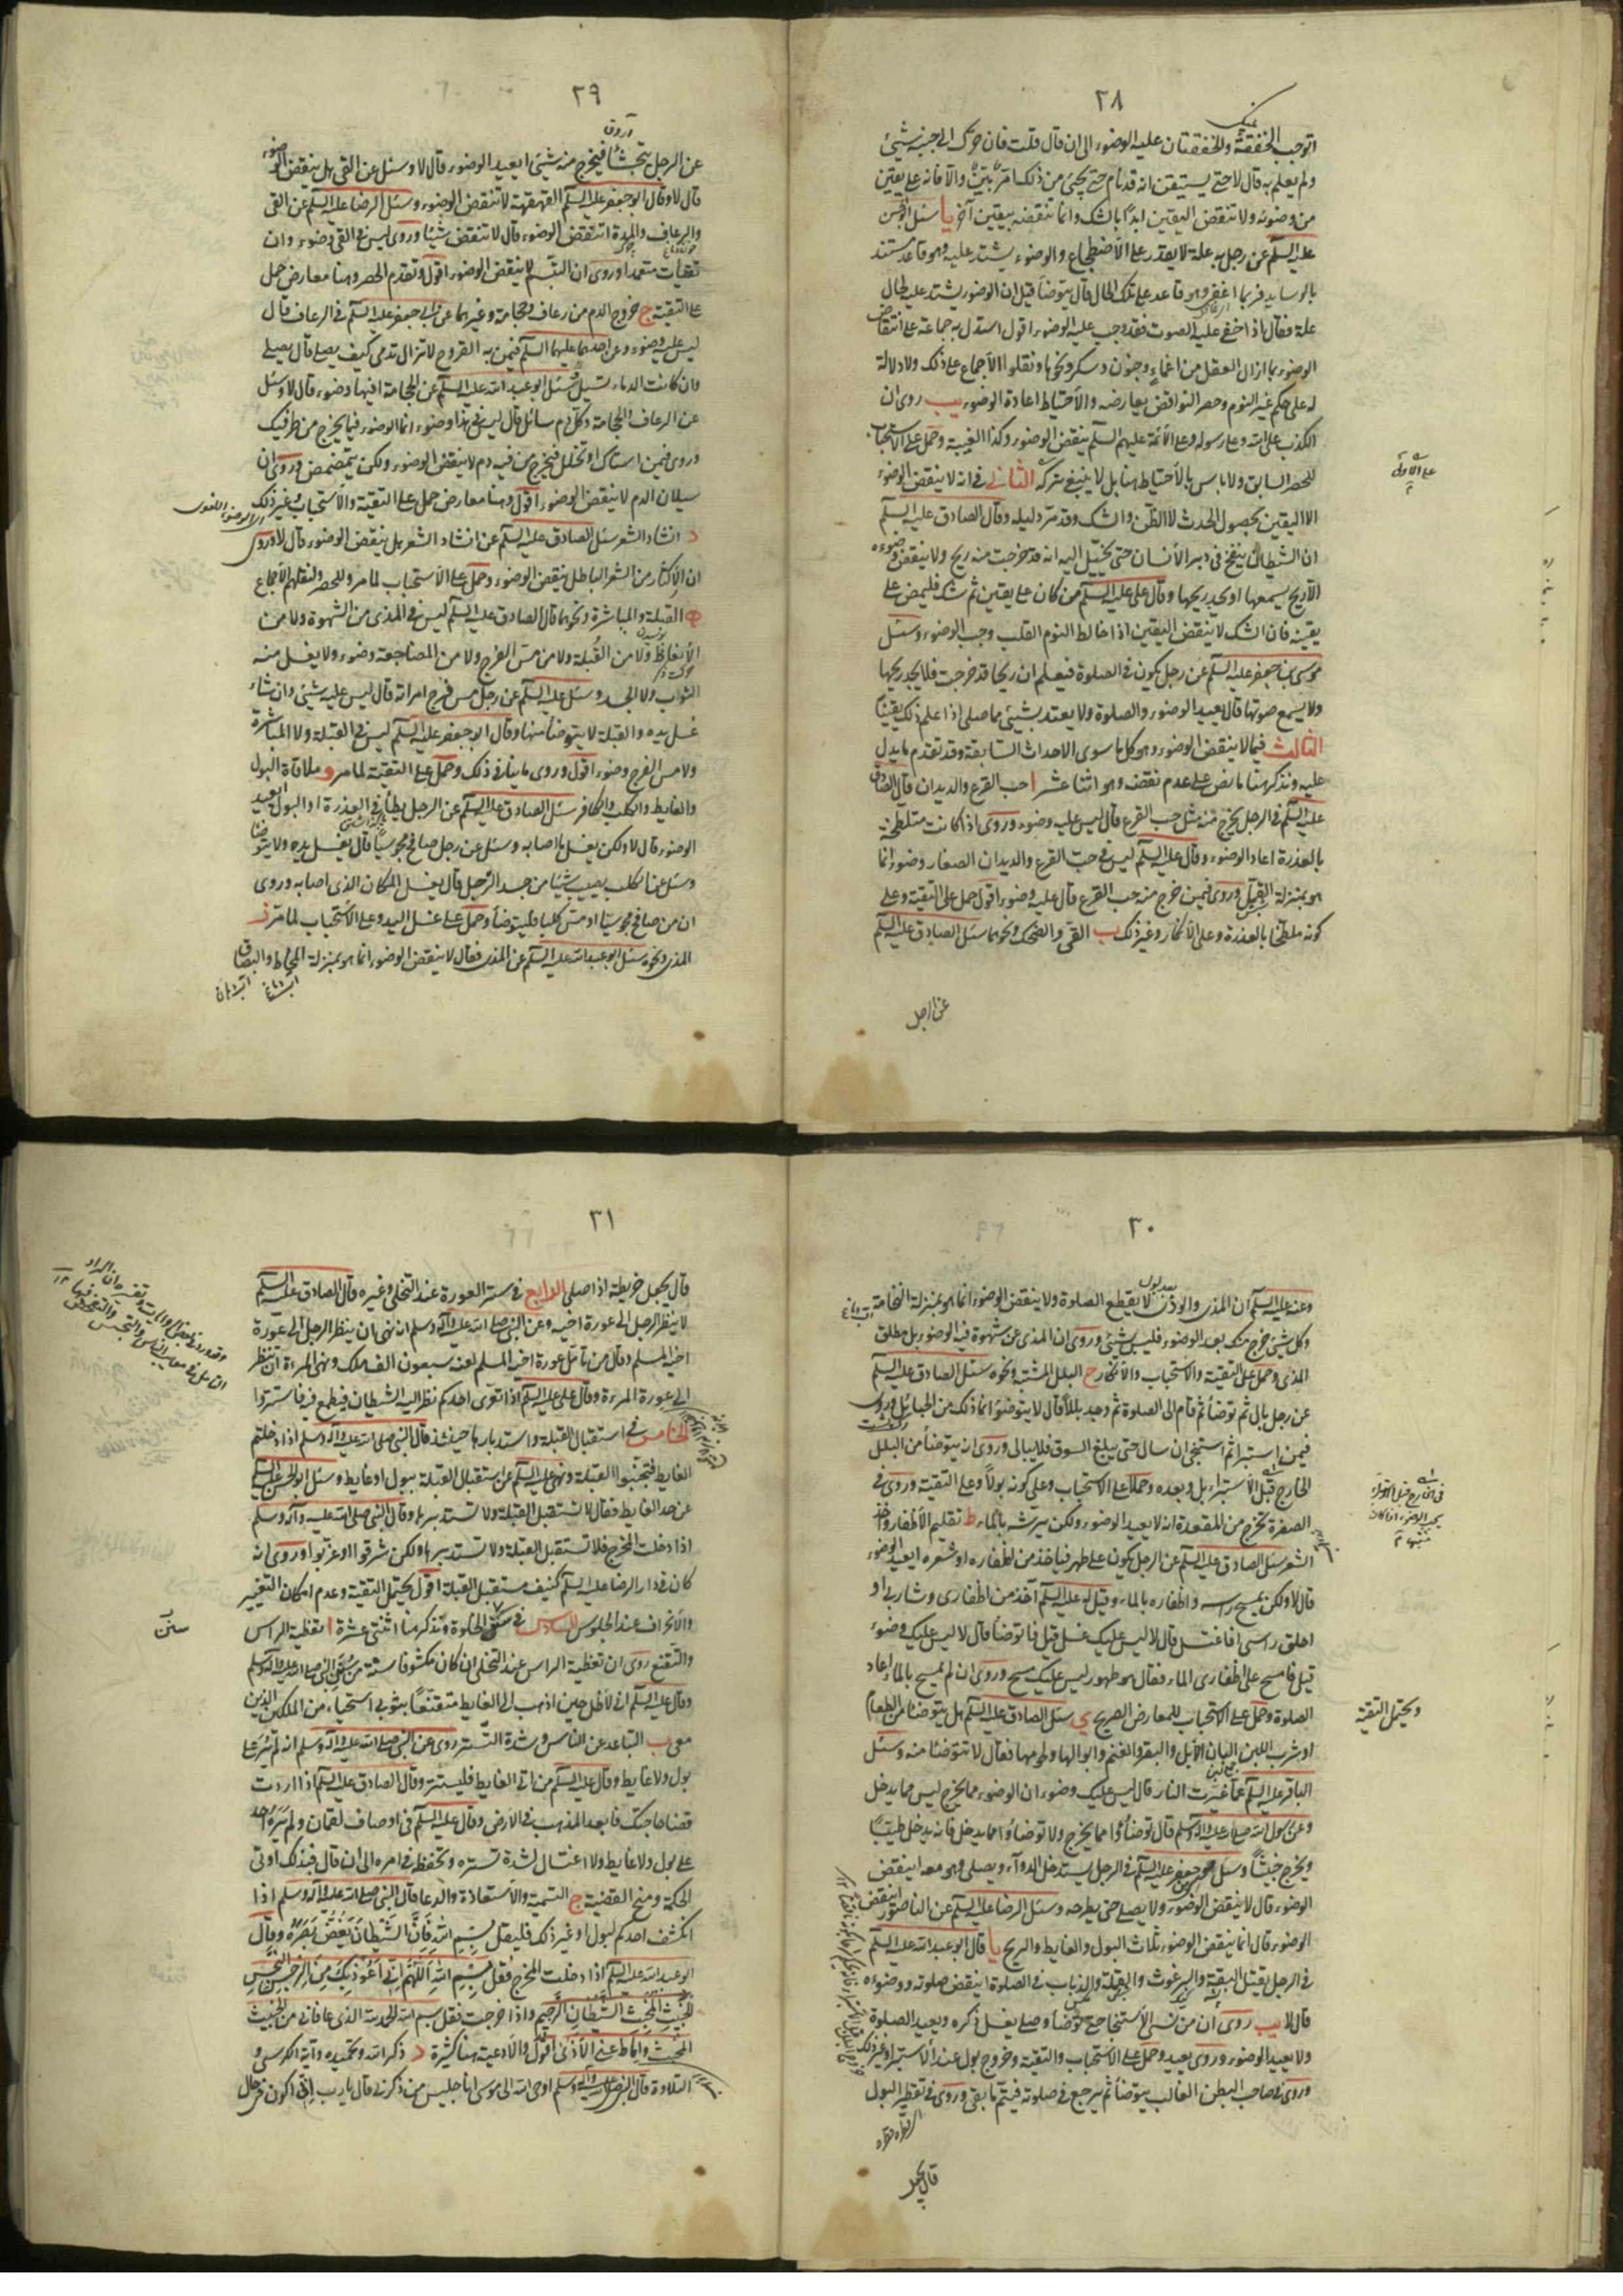 ٢٨
اتوجب الخفقة والخفقتان عليه الوضوء الى ان قال قلت فان حرّك الى جنبه شيئ
ولم يعلم به قال لا حتى يستيقن انه قد نام حتى يجيئ من ذلك امر بيّن والّا فانه على يقين
من وضوئه ولا تنقض اليقين ابدًا بالشك وانما تنقضه بيقين آخر يا سئل ابو الحسن
عليه السلم عن رجل به علة لا يقدر على الاضطجاع والوضوء يشتد عليه وهو قاعد مستند
بالوسايد فربما اغفى وهو قاعد على تلك الحال قال يتوضأ قيل ان الوضوء يشتد عليه لحال
علة فقال اذا خفى عليه الصوت فقد وجب عليه الوضوء اقول استدل به جماعة على انتقاض
الوضوء بما ازال العقل من اغماء وجنون وسكر ونحوها ونقلوا الاجماع على ذلك ولا دلالة
له على حكم غير النوم وحصر النواقض يعارضه والاحتياط اعادة الوضوء يب روى ان
الكذب على الله وعلى رسوله وعلى الائمة عليهم السلم ينقض الوضوء وكذا الغيبة وحمل على الاستحباب
للحصر السابق ولا باس بالاحتياط هنا بل لا ينبغى تركه الثانى فى انه لا ينقض الوضوء
الا اليقين بحصول الحدث لا الظن والشك وقد مرّ دليله وقال الصادق عليه السلم
ان الشيطان ينفخ فى دبر الانسان حتى يخيّل اليه انه قد خرجت منه ريح ولا ينقض وضوءه
الا ريح يسمعها او يجد ريحها وقال على عليه السلم من كان على يقين ثم شك فليمض على
يقينه فان الشك لا ينقض اليقين اذا خالط النوم القلب وجب الوضوء وسئل
موسى بن جعفر عليه السلم عن رجل يكون فى الصلوة فيعلم ان ريحا قد خرجت فلا يجد ريحها
ولا يسمع صوتها قال يعيد الوضوء والصلوة ولا يعتد بشيئ مما صلى اذا علم ذلك يقينًا
الثالث فيما لا ينقض الوضوء وهو كل ما سوى الاحداث السابقة وقد تقدم ما يدل
عليه ونذكر هنا ما نص على عدم نقضه وهو اثنا عشر ا حب القرع والديدان قال الصادق
عليه السلم فى الرجل يخرج منه مثل حب القرع قال ليس عليه وضوء وروى اذا كانت متلطخة
بالعذرة اعاد الوضوء وقال عليه السلم ليس فى حبّ القرع والديدان الصغار وضوء انما
هو بمنزلة القمّل وروى فيمن خرج منه حب القرع قال عليه وضوء اقول حمل على التقية وعلى
كونه ملطخا بالعذرة وعلى الانكار وغير ذلك ب القى والضحك ونحوهما سئل الصادق عليه السلم
عن الرجل
٢٩
آروق
عن الرجل يتجشّأ فيخرج منه شيئ ايعيد الوضوء قال لا وسئل عن القى هل ينقض الوضوء
قال لا وقال ابو جعفر عليه السلم القهقهة لا تنقض الوضوء وسئل الرضا عليه السلم عن القى
والرعاف والمِدة اتنقض الوضوء قال لا تنقض شيئا وروى ليس فى القى وضوء وان
تقيأت متعمدا وروى ان التبسّم لا ينقض الوضوء اقول وتقدم الحصر وهنا معارض حمل
على التقية ج خروج الدم من رعاف وحجامة وغيرهما عن ابى جعفر عليه السلم فى الرعاف قال
ليس عليه وضوء وعن احدهما عليهما السلم فيمن به القروح لا تزال تدمى كيف يصلى قال يصلى
وان كانت الدماء تسيل وسئل ابو عبد الله عليه السلم عن الحجامة افيها وضوء قال لا وسئل
عن الرعاف والحجامة وكل دم سائل قال ليس فى هذا وضوء انما الوضوء فيما يخرج من طرفيك
وروى فيمن استاك او تخلل فيخرج من فيه دم لا ينقض الوضوء ولكن يتمضمض وروى ان
سيلان الدم لا ينقض الوضوء اقول وهنا معارض حمل على التقية والاستحباب وغير ذلك
د انشاد الشعر سئل الصادق عليه السلم عن انشاد الشعر هل ينقض الوضوء قال لا وروى
ان الاكثار من الشعر الباطل ينقض الوضوء وحمل على الاستحباب لما مر وللحصر ولنقلهم الاجماع
ه القبلة والمباشرة ونحوهما قال الصادق عليه السلم ليس فى المذى من الشهوة ولا من
الانعاظ ولا من القُبلة ولا من مسّ الفرج ولا من المضاجعة وضوء ولا يغسل منه
الثواب ولا الجسد وسئل عليه السلم عن رجل مس فرج امراته قال ليس عليه شيئ وان شاء
غسل يده والقبلة لا يتوضأ منها وقال ابو جعفر عليه السلم ليس فى القبلة ولا المباشرة
ولا مس الفرج وضوء اقول وروى ما ينافى ذلك وحمل على التقية لما مر و ملاقاة البول
والغايط والكلب والكافر سئل الصادق عليه السلم عن الرجل يطأ فى العذرة او البول ايعيد
الوضوء قال لا ولكن يغسل ما اصابه وسئل عن رجل صافح مجوسيًّا قال يغسل يده ولا يتوضا
وسئل عن الكلب يصيب شيئا من جسد الرجل قال يغسل المكان الذى اصابه وروى
ان من صافح مجوسيا او مسّ كلبا فليتوضأ وحمل على غسل اليد وعلى الاستحباب لما مرّ ز
المذى ونحوه سئل ابو عبد الله عليه السلم عن المذى فقال لا ينقض الوضوء انما هو بمنزلة المخاط والبصاق
٣٠
وعنه عليه السلم ان المذى والودى لا يقطع الصلوة ولا ينقض الوضوء انما هو بمنزلة النخامة
وكل شيئ خرج منك بعد الوضوء فليس بشيئ وروى ان المذى عن شهوة فيه الوضوء بل مطلق
المذى وحمل على التقية والاستحباب والانكار ح البلل المشتبه ونحوه سئل الصادق عليه السلم
عن رجل بال ثم توضأ ثم قام الى الصلوة ثم وجد بللًا قال لا يتوضؤ انما ذلك من الحبائل وروى
فيمن استبرأ ثم استنجى ان سال حتى يبلغ السوق فلا يبالى وروى انه يتوضأ من البلل
الخارج قبل الاستبراء بل وبعده وحملا على الاستحباب وعلى كونه بولًا وعلى التقية وروى فى
الصفرة تخرج من المقعدة انه لا يعيد الوضوء ولكن يرشه بالماء ط تقليم الاظفار واخذ
الشعر سئل الصادق عليه السلم عن الرجل يكون على طهر فياخذ من اظفاره او شعره ايعيد الوضوء
قال لا ولكن يمسح راسه واظفاره بالماء وقيل له عليه السلم آخذ من اظفارى وشاربى او
احلق راسى افاغتسل قال لا ليس عليك غسل قيل فاتوضأ قال لا ليس عليك وضوء
قيل فامسح على اظفارى الماء فقال هو طهور ليس عليك مسح وروى ان لم يمسح بالماء اعاد
الصلوة وحمل على الاستحباب للمعارض الصريح ى سئل الصادق عليه السلم هل يتوضأ من الطعام
او شرب اللبن البان الابل والبقر والغنم وابوالها ولحومها فقال لا تتوضئا منه وسئل
الباقر عليه السلم عما غيّرت النار قال ليس عليك وضوء ان الوضوء مما يخرج ليس مما يدخل
وعن رسول الله صلى الله عليه وآله وسلم قال توضأوا مما يخرج ولا توضأوا مما يدخل فانه يدخل طيبًا
ويخرج خبيثًا وسئل موسى بن جعفر عليه السلم فى الرجل يستدخل الدواء ويصلى وهو معه اينقض
الوضوء قال لا ينقض الوضوء ولا يصلى حتى يطرحه وسئل الرضا عليه السلم عن الناصور اينقض
الوضوء قال انما ينقض الوضوء ثلاث البول والغايط والريح يا قال ابو عبد الله عليه السلم
فى الرجل يقتل البقة والبرغوث والقملة والذباب فى الصلوة اينقض صلوته ووضوءه
قال لا يب روى ان من نسى الاستنجا حتى توضأ وصلى يغسل ذكره ويعيد الصلوة
ولا يعيد الوضوء وروى يعيد وحمل على الاستحباب والتقية وخروج بول عند الاستبراء وغير ذلك
وروى فى صاحب البطن الغالب يتوضأ ثم يرجع فى صلوته فيتمّ ما بقى وروى فى تقطير البول
ويحتمل التقية
قال يجعل
٣١
قال يجعل خريطة اذا صلى الرابع فى ستر العورة عند التخلى وغيره قال الصادق عليه السلم
لا ينظر الرجل الى عورة اخيه وعن النبى صلى الله عليه وآله وسلم انه نهى ان ينظر الرجل الى عورة
اخيه المسلم وقال من تأمّل عورة اخيه المسلم لعنه سبعون الف ملك ونهى المرءة ان تنظر
الى عورة المرءة وقال على عليه السلم اذا تعرّى احدكم نظر اليه الشيطان فيطمع فيه فاستتروا
الخامس فى استقبال القبلة واستدبارها حينئذ قال النبى صلى الله عليه وآله وسلم اذا دخلتم
الغايط فتجنبوا القبلة ونهى عليه السلم عن استقبال القبلة ببول او غايط وسئل ابو الحسن عليه السلم
عن حد الغايط فقال لا تستقبل القبلة ولا تستدبرها وقال النبى صلى الله عليه وآله وسلم
اذا دخلت المخرج فلا تستقبل القبلة ولا تستدبرها ولكن شرقوا او غربوا وروى انه
كان فى دار الرضا عليه السلم كنيف مستقبل القبلة اقول يحتمل التقية وعدم امكان التغيير
والانحراف عند الجلوس السادس فى سنن الخلوة ونذكر هنا اثنتى عشرة ا تغطية الراس
والتقنع روى ان تغطية الراس عند التخلى ان كان مكشوفا سنّة من سُنَن النبى صلى الله عليه وآله وسلم
وقال عليه السلم انى لاظل حين اذهب الى الغايط متقنّعًا بثوبى استحياء من الملكين الذين
معى ب التباعد عن الناس وشدة التستر روى عن النبى صلى الله عليه وآله وسلم انه لم يُرَ على
بول ولا غايط وقال عليه السلم من اتى الغايط فليستتر وقال الصادق عليه السلم اذا اردت
قضا حاجتك فابعد المذهب فى الارض وقال عليه السلم فى اوصاف لقمان ولم يَرَهُ احد
على بول ولا غايط ولا اغتسال لشدة تستره وتحفظه فى امره الى ان قال فبذلك اوتى
الحكمة ومنح القضية ج التسمية والاستعاذة والدعا قال النبى صلى الله عليه وآله وسلم اذا
انكشف احدكم لبول او غير ذلك فليقل بِسْمِ اللهِ فَاِنَّ الشَّيْطانَ يَغُضُّ بَصَرَهُ وقال
ابو عبد الله عليه السلم اذا دخلت المخرج فقل بِسْمِ اللهِ اَللّهُمَّ اِنّى اَعُوذُ بِكَ مِنَ الرِّجْسِ النِّجْسِ
الخَبِيثِ المُخْبِثِ الشَّيْطانِ الرَّجِيمِ واذا خرجت فقل بسم الله الحمد لله الذى عافانى من الخبيث
المخبث واماط عنى الاذى اقول والادعية هنا كثيرة د ذكر الله وتحميده وآية الكرسى و
التلاوة قال النبى صلى الله عليه وآله وسلم اوحى الله الى موسى انا جليس من ذكرنى قال يا رب انى اكون فى حال
سنن